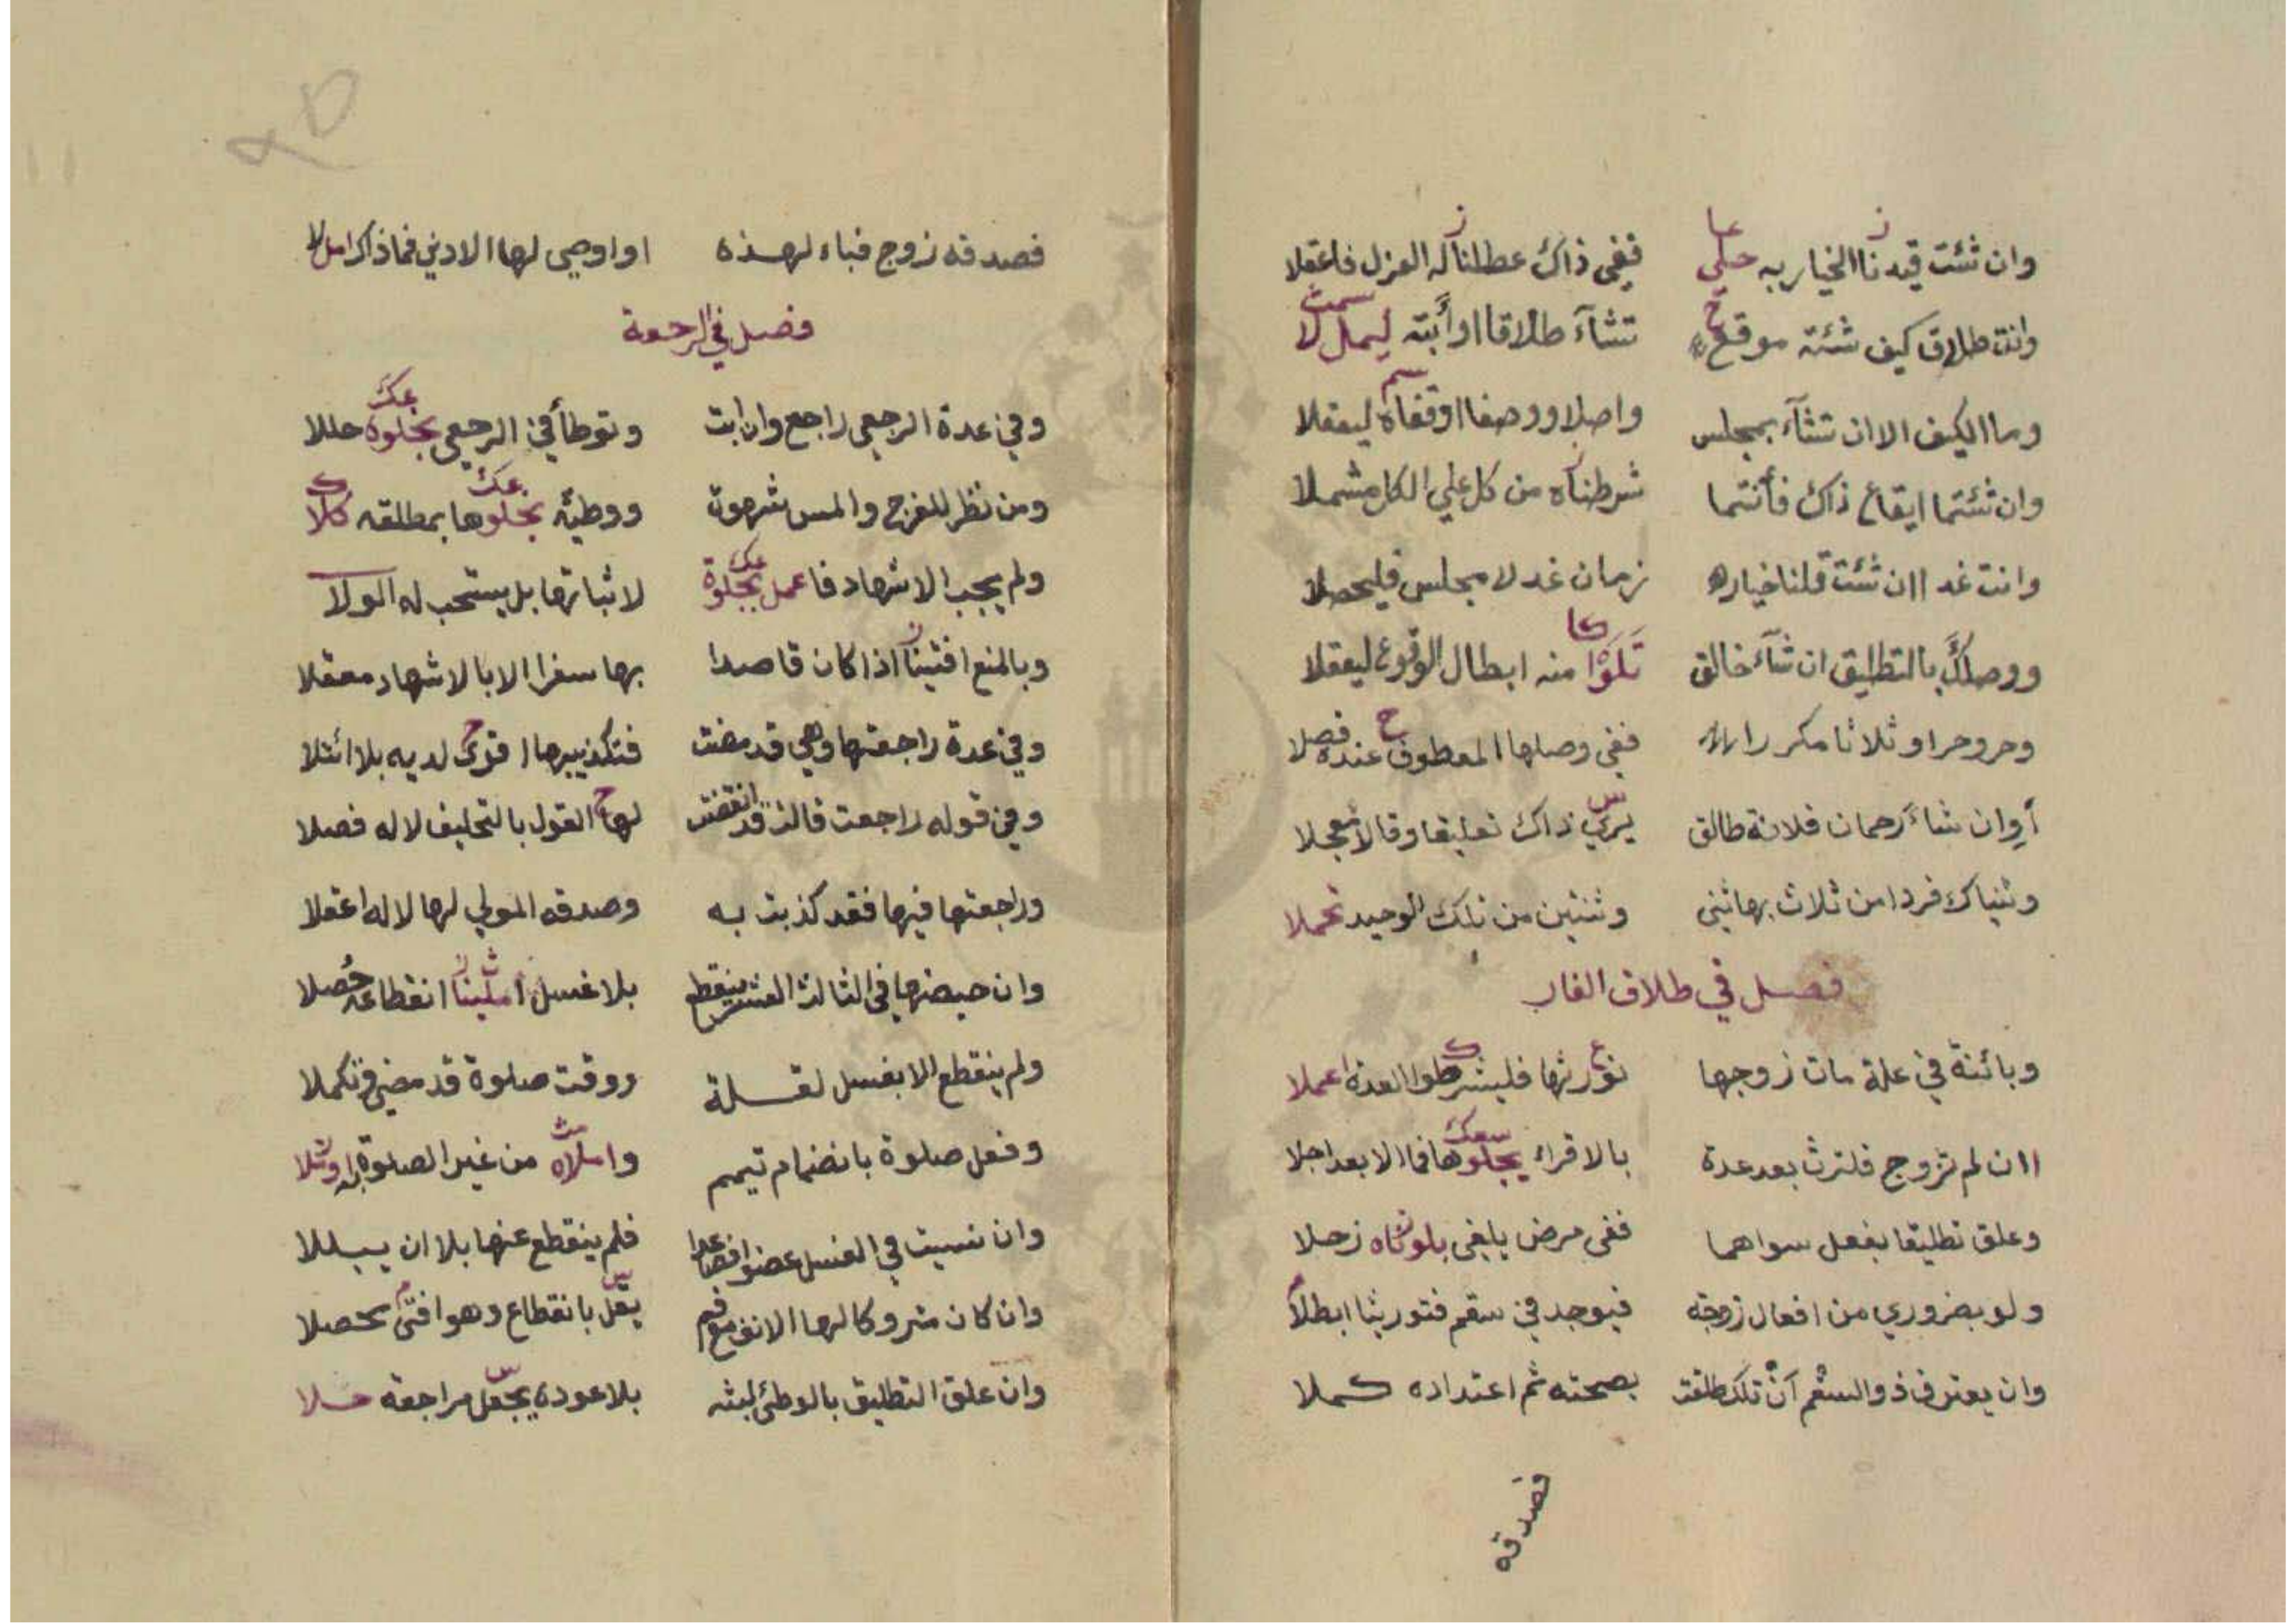 وان شئت قيدنا الخيار به حلي ففي ذاك عطلناله العزل فاعقلا
وانت طلاق كيف شئته موقع تشآء طلاقا او أبته ليمل لا
وما الكيف الا ان تشآء بمجلس واصلا ووصفا اوقفاه ليعقلا
وان شئتما ايقاع ذاك فأنتما شرطناه من كل علي الكل مشملا
وانت غدا ان شئت قلنا خياره زمان غد لا مجلس فليحصلا
ووصلك بالتطليق ان شآء خالق تلوا منه ابطال الوقوع ليعقلا
وحر وحر او ثلاثا مكررا ففي وصلها المعطوف عنده فصلا
أوان شاء رحمان فلانة طالق يري ذاك تعليقا وقالا معجلا
وثنياك فردا من ثلاث بها ثني وثنتين من تلك الوحيد تحملا
فصل في طلاق الفار
وبائنة في علة مات زوجها نورثها فليشرطوا العدة اعملا
اان لم تزوج فلترث بعد عدة بالاقراء يجلوها فما الابعد اجلا
وعلق تطليقا بفعل سواهما ففي مرض يلغي بلوناه زحلا
ولو بضروري من افعال زوجة فيوجد في سقم فتوريثا ابطلا
وان يعترف ذو السقم أن تلك طلقت بصحته ثم اعتداده كملا
فصدقه
فصدقه زوج فباء لهذه او اوصي لها الادني فما ذاك امل لا
فصل في الرجعة
وفي عدة الرجعي راجع وان ابت وتوطأ في الرجعي بجلوة حللا
ومن نظر للفرج والمس شهوة ووطئه بجلوها بمطلقه كلا
ولم يجب الاشهاد فاعمل بجلوة لاثباتها بل يستحب له الولا
وبالمنع افتينا اذا كان قاصدا بها سفرا الا بالاشهاد معقلا
وفي عدة راجعتها وهي قد مضت فتكذيبها اقوى لديه بلا ائتلا
وفي قوله راجعت قالت قد انقضت لها القول بالتحليف لا له فصلا
وراجعتها فيها فقد كذبت به وصدقه المولي لها لا له اعقلا
وان حيضها في الثالث العشر ينقطع بلا غسل أملينا انقطاعه حصلا
ولم ينقطع الا بغسل لقلة ووقت صلوة قد مضي فتكملا
وفعل صلوة بانضمام تيمم واملاه من غير الصلوة له وتلا
وان نسيت في الغسل عضوا فصاعدا فلم ينقطع عنها بلا ان يبللا
وان كان متروكا لها الانف مع فم يقل بانقطاع وهو افتى تحصلا
وان علق التطليق بالوطئ لبثه بلا عوده يجعل مراجعة حلا